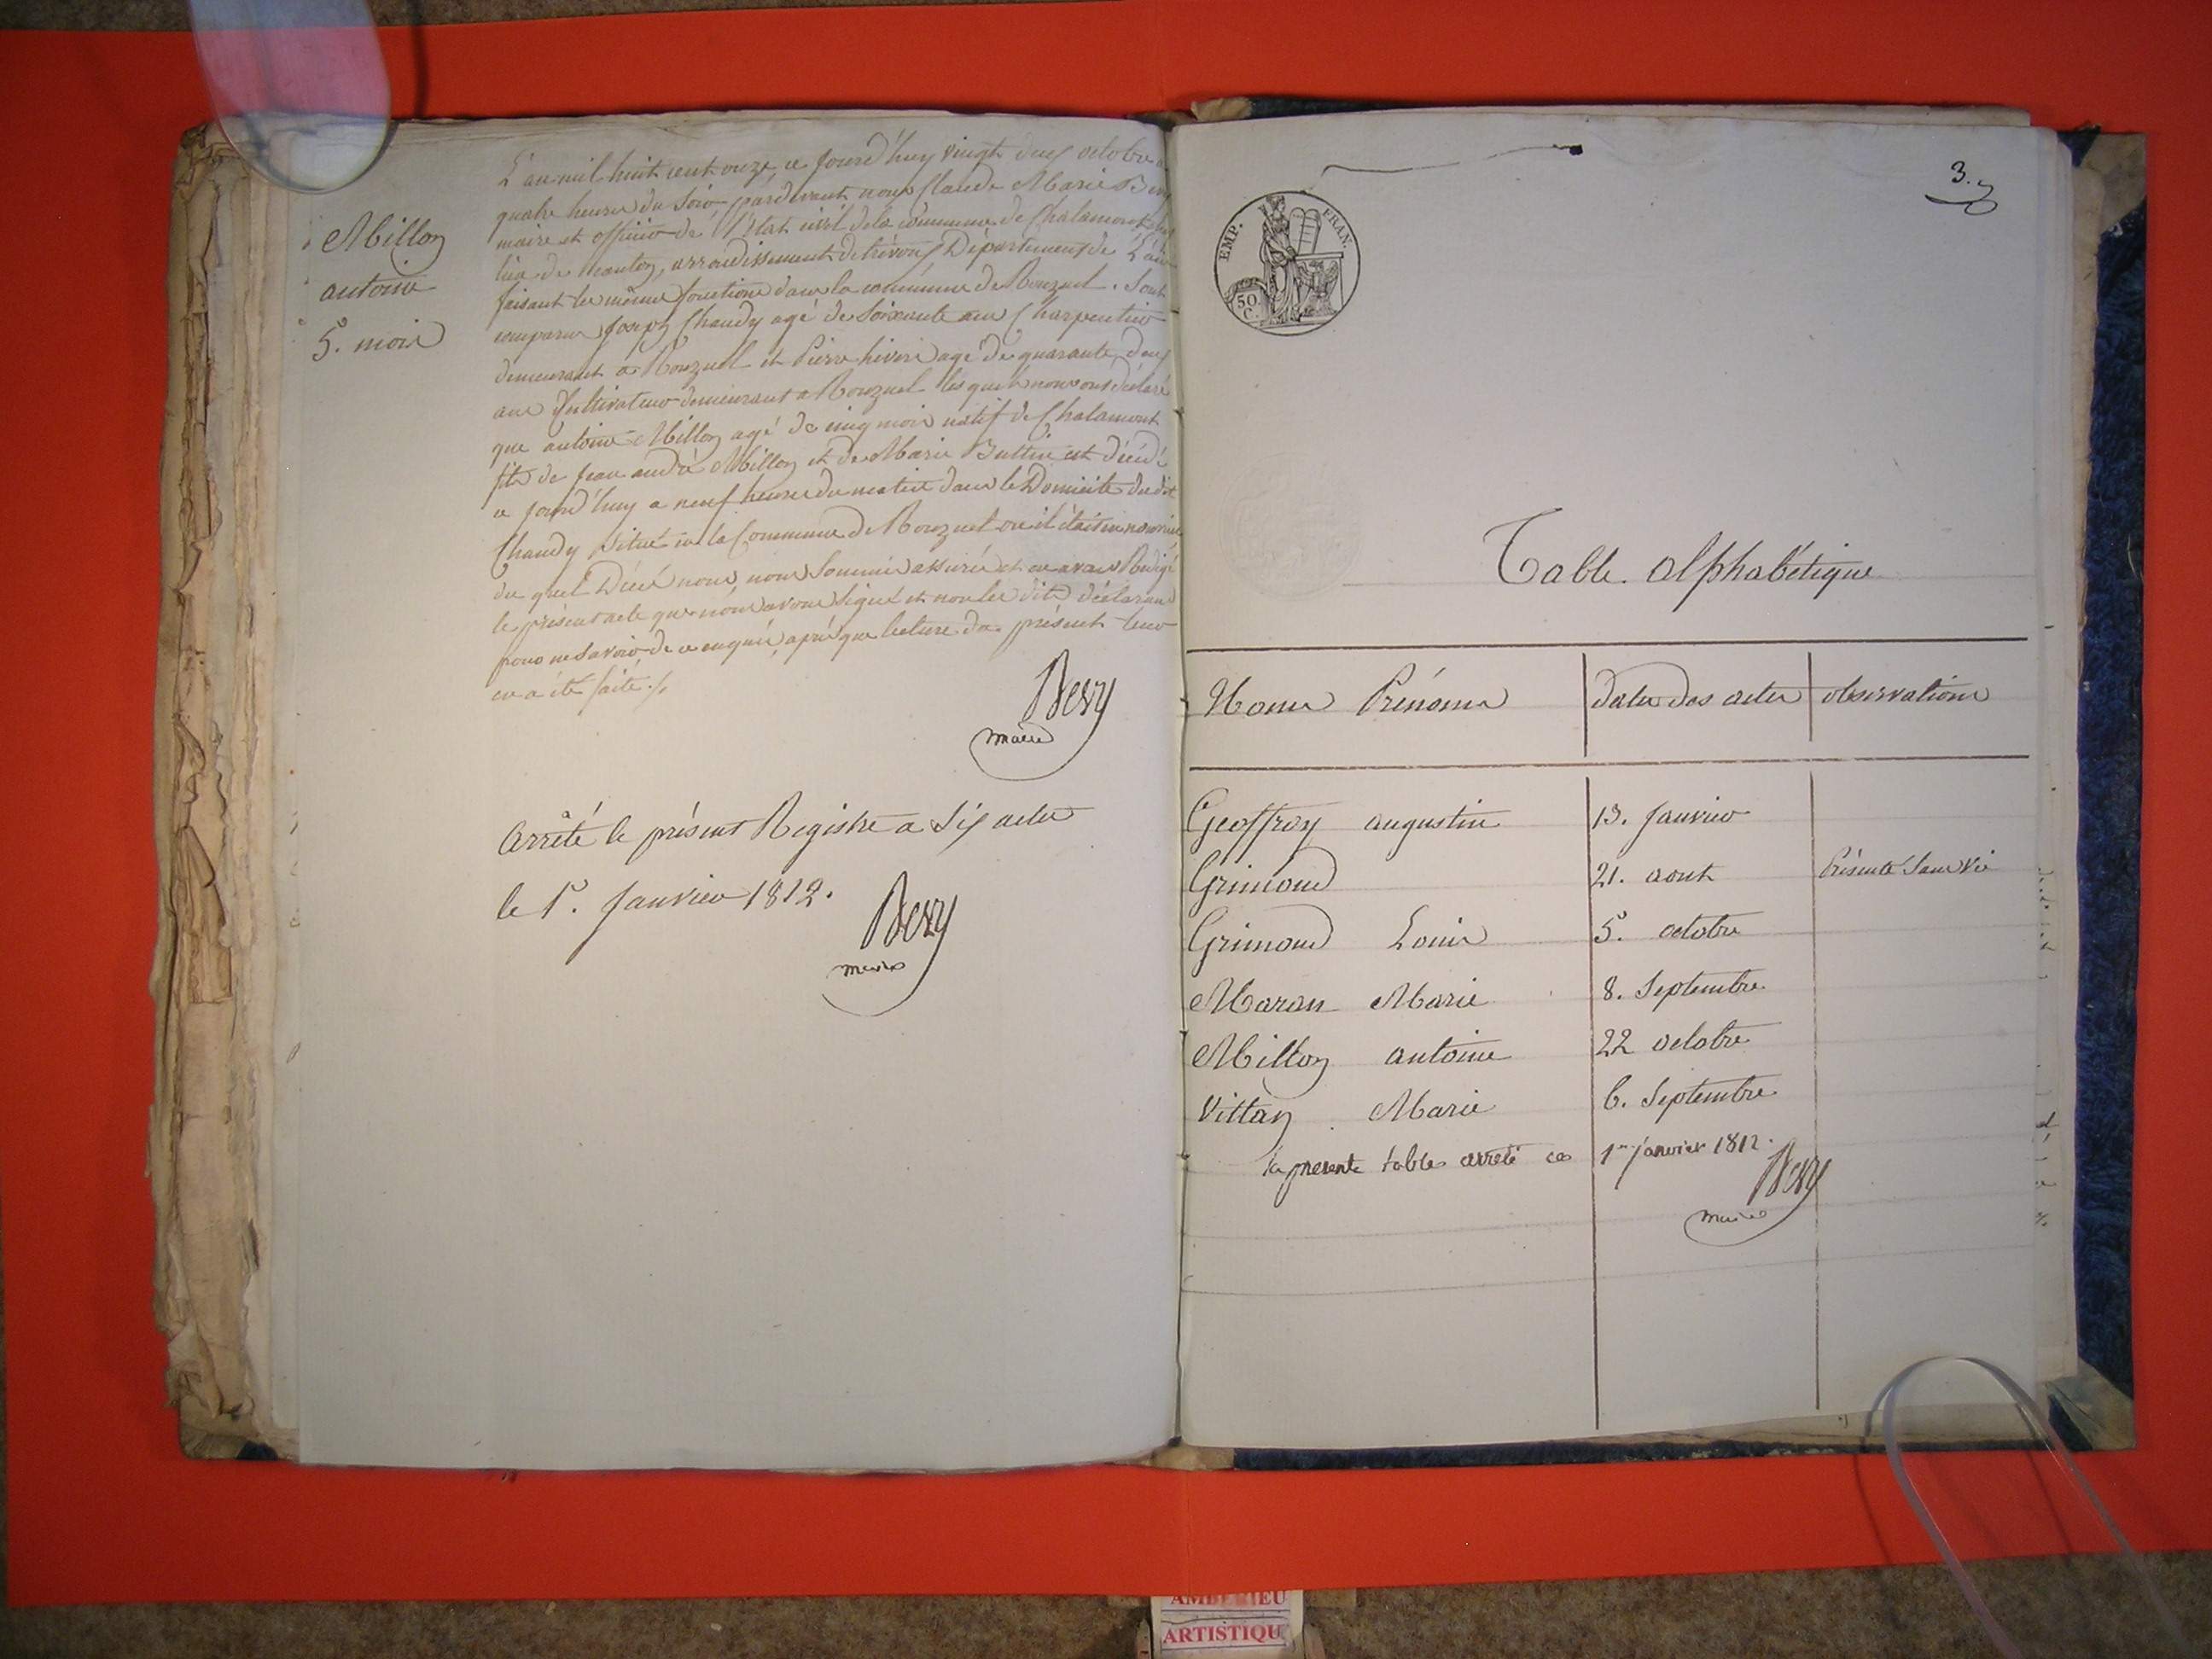 Millon
antoine
5. mois
L'an mil huit cent onze, ce jourd'huy vingt deux octobre a
quatre heures du soir, pardevant nous Claude Marie Bery
maire et officier de l'état civil de la commune de Chalamont chef
lieu de canton, arrondissement de trévoux Département de L'ain
faisant les mêmes fonctions dans la commune de Ronzuel. Sont
comparus Joseph Chaudy agé de soixante ans Charpentier
demeurant a Ronzuel et Pierre hivere agé de quarante deux
ans Cultivateur demeurant a Ronzuel les quels nous ont déclaré
que antoine Millon agé de cinq mois natif de Chalamont
fils de Jean andré Millon et de Marie Buttin est décédé
ce jourd'huy a neuf heures du matin dans le Domicile du dit
Chaudy situé en la Commune de Ronzuel ou il étoit en nourrice
du quel Décé nous, nous sommes assurés et en avons Rédigé
le présent acte que nous avons signé et non les dits déclarans
pour ne savoir de ce enquis, après que lecture du présent leur
en a été faite./.
Bery
maire
Arrêté le présent Registre a Six actes
le 1er. Janvier 1812.
Bery
maire
3.
EMP. FRAN.
50
C.
Table alphabétique
Noms Prénoms Dates des actes observations
Geoffray augustin 13. Janvier
Grimoud 21. aout Présenté sans vie
Grimoud Louis 5. octobre
Maran Marie 8. Septembre
Millon antoine 22 octobre
Vittan Marie 6. Septembre
la presente table arreté ce 1er janvier 1812.
Bery
maire
ARTISTIQU